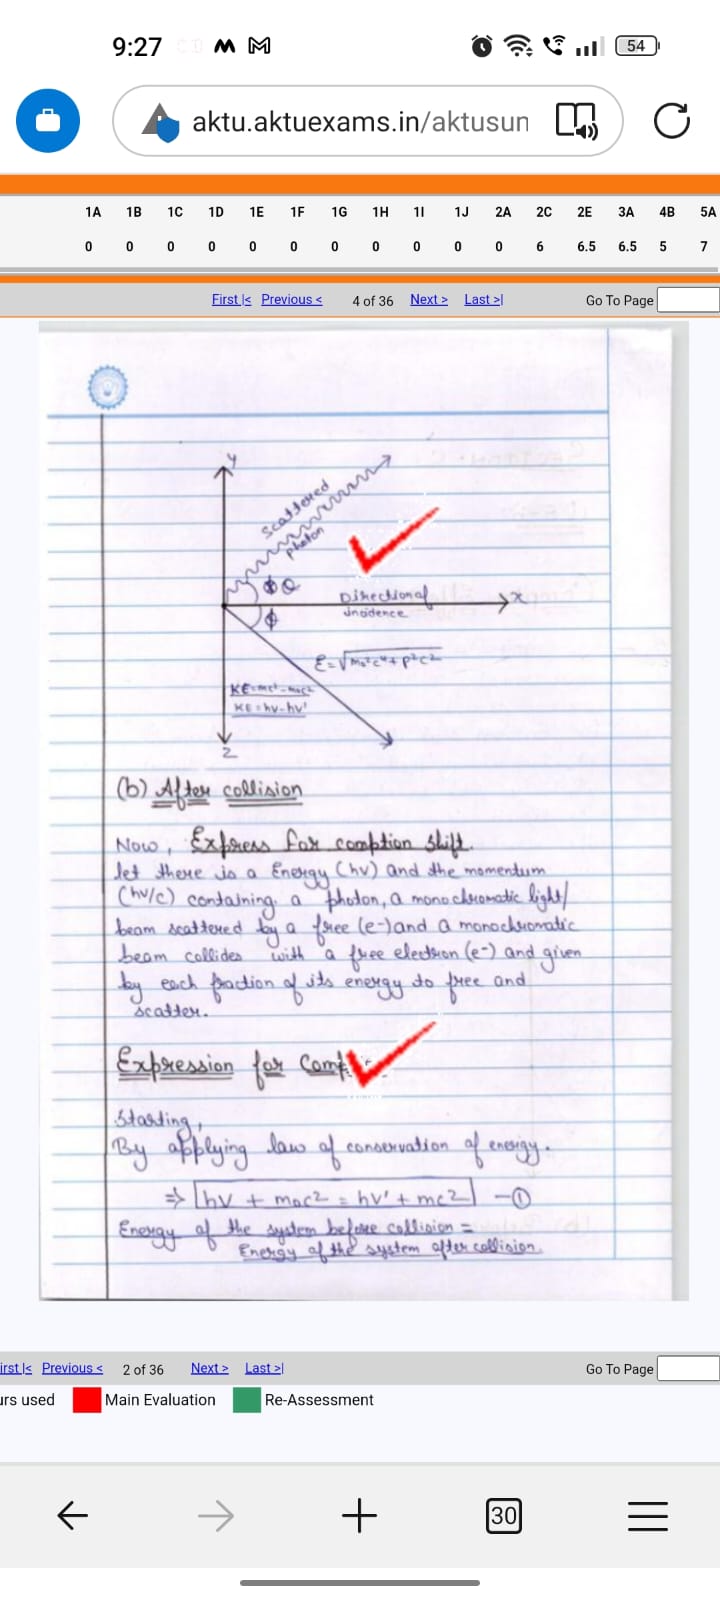 9:27
54
aktu.aktuexams.in/aktusun
1A 1B 1C 1D 1E 1F 1G 1H 1I 1J 2A 2C 2E 3A 4B 5A
0 0 0 0 0 0 0 0 0 0 0 6 6.5 6.5 5 7
First |< Previous < 4 of 36 Next > Last >| Go To Page
y
Scattered
photon
θ
Directional
incidence
x
ϕ
E=√m₀²c⁴+p²c²
KE=mc²-m₀c²
KE=hν-hν'
z
(b) After collision
Now, Express for comption shift.
let there is a Energy (hν) and the momentum
(hν/c) containing a photon, a monochromatic light/
beam scattered by a free (e-) and a monochromatic
beam collides with a free electron (e-) and given
by each fraction of its energy to free and
scatter.
Expression for Comp
Starting,
By applying law of conservation of energy.
⇒ hν + m₀c² = hν' + mc² —①
Energy of the system before collision =
Energy of the system after collision.
irst |< Previous < 2 of 36 Next > Last >| Go To Page
urs used Main Evaluation Re-Assessment
30